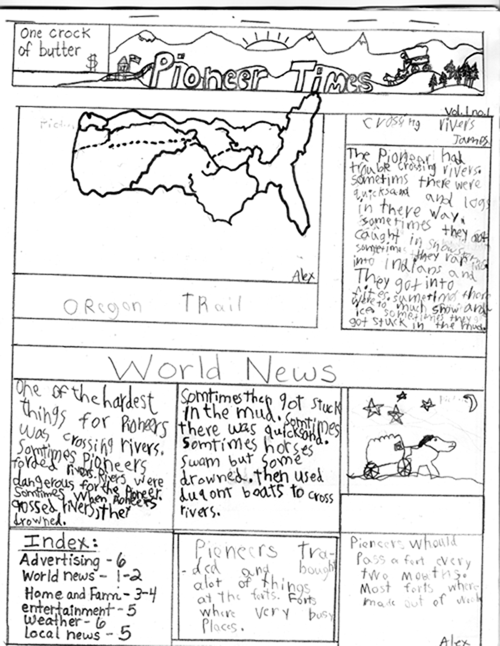 One crock
of butter
$
Pioneer Times
Vol. 1 no. 1
crossing rivers
James
The Pioneer had
trouble crossing rivers.
sometims there were
quicksand and logs
in there way.
sometimes they
caught in
sometimes they ran
into Indians and
They got into
sometimes there
were to much snow and
ice sometimes they
got stuck in the mud.
Alex
Oregon Trail
World News
One of the hardest
things for Pioneers
was crossing rivers.
Somtimes Pioneers
forded rivers. Rivers were
dangerous for the Pioneer.
Somtimes When Pioneers
crossed rivers ther
drowned.
Somtimes they got stuck
in the mud. Somtimes
there was quicksand.
Somtimes horses
swam but some
drowned. Then used
dugont boats to cross
rivers.
Index:
Advertising - 6
World news - 1-2
Home and Farm - 3-4
entertainment - 5
weather - 6
local news - 5
Pioneers tra-
ded and bought
alot of things
at the forts. Forts
where very busy
Places.
Pioneers whould
Pass a fort every
two months.
Most forts where
made out of wood
Alex